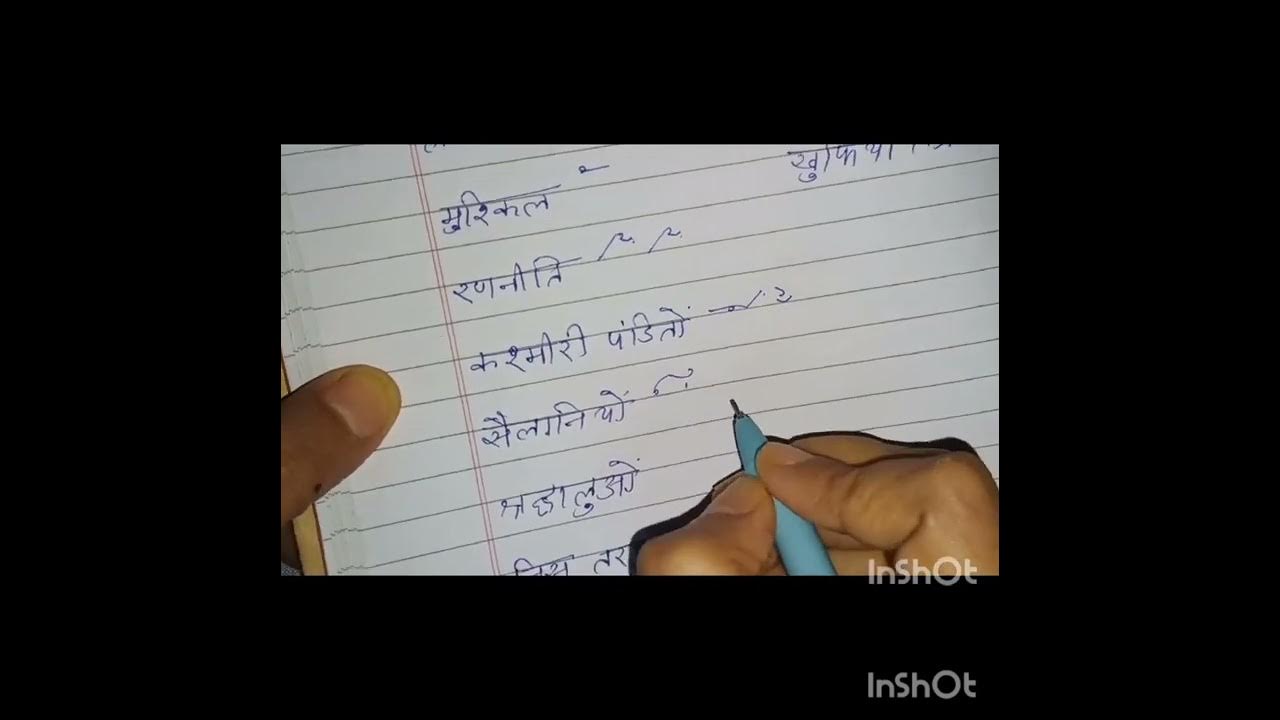 मुश्किल
रणनीति
कश्मीरी पंडितों
सैलानियों
श्रद्धालुओं
InShOt
InShOt